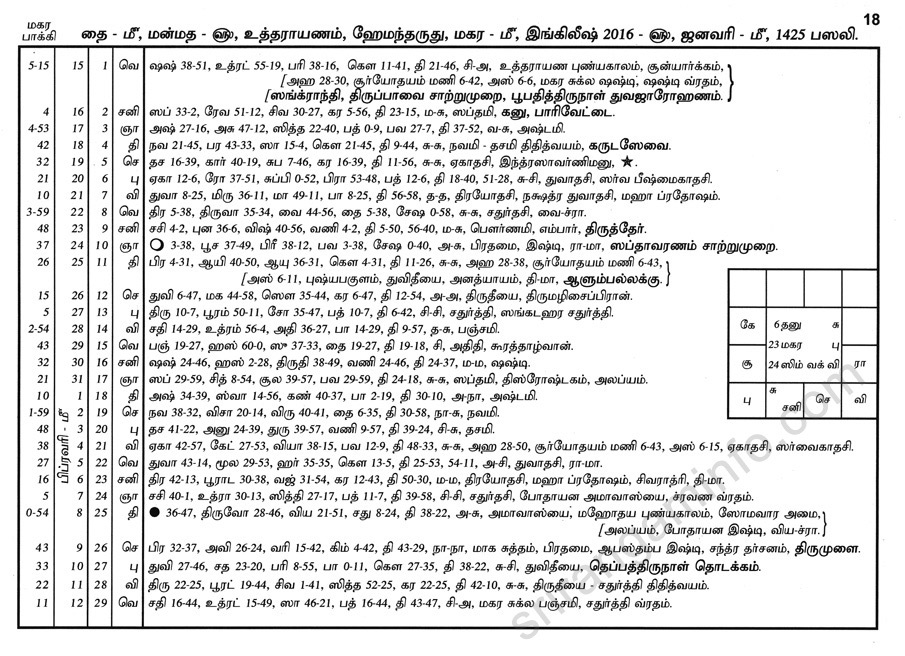 18
மகர
பாக்கி
தை - மீ, மன்மத - ௵, உத்தராயணம், ஹேமந்தருது, மகர - மீ, இங்கிலீஷ் 2016 - ௵, ஜனவரி - மீ, 1425 பஸலி.
5-15 15 1 வெ ஷஷ் 38-51, உத்ரட் 55-19, பரி 38-16, கௌ 11-41, தி 21-46, சி-அ, உத்தராயண புண்யகாலம், சூன்யார்க்கம்,
[அஹ 28-30, சூர்யோதயம் மணி 6-42, அஸ் 6-6, மகர சுக்ல ஷஷ்டி, ஷஷ்டி வ்ரதம்,
[ஸங்க்ராந்தி, திருப்பாவை சாற்றுமுறை, பூபதித்திருநாள் துவஜாரோஹணம்.
4 16 2 சனி ஸப் 33-2, ரேவ 51-12, சிவ 30-27, கர 5-56, தி 23-15, ம-சு, ஸப்தமி, கனு, பாரிவேட்டை.
4-53 17 3 ஞா அஷ் 27-16, அசு 47-12, ஸித்த 22-40, பத் 0-9, பவ 27-7, தி 37-52, வ-சு, அஷ்டமி.
42 18 4 தி நவ 21-45, பர 43-33, ஸா 15-4, கௌ 21-45, தி 9-44, சு-சு, நவமி - தசமி திதித்வயம், கருடஸேவை.
32 19 5 செ தச 16-39, கார் 40-19, சுப 7-46, கர 16-39, தி 11-56, சு-சு, ஏகாதசி, இந்த்ரஸாவர்ணிமனு, ★.
21 20 6 பு ஏகா 12-6, ரோ 37-51, சுப்பி 0-52, பிரா 53-48, பத் 12-6, தி 18-40, 51-28, சு-சி, துவாதசி, ஸர்வ பீஷ்மைகாதசி.
10 21 7 வி துவா 8-25, மிரு 36-11, மா 49-11, பா 8-25, தி 56-58, த-த, திரயோதசி, நக்ஷத்ர துவாதசி, மஹா ப்ரதோஷம்.
3-59 22 8 வெ திர 5-38, திருவா 35-34, வை 44-56, தை 5-38, சேஷ 0-58, சு-சு, சதுர்தசி, வை-ச்ரா.
48 23 9 சனி சசி 4-2, புன 36-6, விஷ் 40-56, வணி 4-2, தி 5-50, 56-40, ம-சு, பௌர்ணமி, எம்பார், திருத்தேர்.
37 24 10 ஞா ○ 3-38, பூச 37-49, பிரீ 38-12, பவ 3-38, சேஷ 0-40, அ-சு, பிரதமை, இஷ்டி, ரா-மா, ஸப்தாவரணம் சாற்றுமுறை.
26 25 11 தி பிர 4-31, ஆயி 40-50, ஆயு 36-31, கௌ 4-31, தி 11-26, சு-சு, அஹ 28-38, சூர்யோதயம் மணி 6-43,
[அஸ் 6-11, புஷ்யபகுளம், துவிதீயை, அனத்யாயம், தி-மா, ஆளும்பல்லக்கு.
15 26 12 செ துவி 6-47, மக 44-58, ஸௌ 35-44, கர 6-47, தி 12-54, அ-அ, திருதீயை, திருமழிசைப்பிரான்.
5 27 13 பு திரு 10-7, பூரம் 50-11, சோ 35-47, பத் 10-7, தி 6-42, சி-சி, சதுர்த்தி, ஸங்கடஹர சதுர்த்தி.
2-54 28 14 வி சதி 14-29, உத்ரம் 56-4, அதி 36-27, பா 14-29, தி 9-57, த-சு, பஞ்சமி.
43 29 15 வெ பஞ் 19-27, ஹஸ் 60-0, ஸு 37-33, தை 19-27, தி 19-18, சி, அதிதி, கூரத்தாழ்வான்.
32 30 16 சனி ஷஷ் 24-46, ஹஸ் 2-28, திருதி 38-49, வணி 24-46, தி 24-37, ம-ம, ஷஷ்டி.
21 31 17 ஞா ஸப் 29-59, சித் 8-54, சூல 39-57, பவ 29-59, தி 24-18, சு-சு, ஸப்தமி, திஸ்ரோஷ்டகம், அலப்யம்.
10 1 18 தி அஷ் 34-39, ஸ்வா 14-56, கண் 40-37, பா 2-19, தி 30-10, அ-நா, அஷ்டமி.
பிப்ரவரி - மீ
1-59 2 19 செ நவ 38-32, விசா 20-14, விரு 40-41, தை 6-35, தி 30-58, நா-சு, நவமி.
48 3 20 பு தச 41-22, அனு 24-39, துரு 39-57, வணி 9-57, தி 39-24, சி-சு, தசமி.
38 4 21 வி ஏகா 42-57, கேட் 27-53, வியா 38-15, பவ 12-9, தி 48-33, சு-சு, அஹ 28-50, சூர்யோதயம் மணி 6-43, அஸ் 6-15, ஏகாதசி, ஸர்வைகாதசி.
27 5 22 வெ துவா 43-14, மூல 29-53, ஹர் 35-35, கௌ 13-5, தி 25-53, 54-11, அ-சி, துவாதசி, ரா-மா.
16 6 23 சனி திர 42-13, பூராட 30-38, வஜ் 31-54, கர 12-43, தி 50-30, ம-ம, திரயோதசி, மஹா ப்ரதோஷம், சிவராத்ரி, தி-மா.
5 7 24 ஞா சசி 40-1, உத்ரா 30-13, ஸித்தி 27-17, பத் 11-7, தி 39-58, சி-சி, சதுர்தசி, போதாயன அமாவாஸ்யை, ச்ரவண வ்ரதம்.
0-54 8 25 தி ● 36-47, திருவோ 28-46, விய 21-51, சது 8-24, தி 38-22, அ-சு, அமாவாஸ்யை, மஹோதய புண்யகாலம், ஸோமவார அமை,
[அலப்யம், போதாயன இஷ்டி, விய-ச்ரா.
43 9 26 செ பிர 32-37, அவி 26-24, வரி 15-42, கிம் 4-42, தி 43-29, நா-நா, மாக சுத்தம், பிரதமை, ஆபஸ்தம்ப இஷ்டி, சந்த்ர தர்சனம், திருமுளை.
33 10 27 பு துவி 27-46, சத 23-20, பரி 8-55, பா 0-11, கௌ 27-35, தி 38-22, சு-சி, துவிதீயை, தெப்பத்திருநாள் தொடக்கம்.
22 11 28 வி திரு 22-25, பூரட் 19-44, சிவ 1-41, ஸித்த 52-25, கர 22-25, தி 42-10, சு-சு, திருதீயை - சதுர்த்தி திதித்வயம்.
11 12 29 வெ சதி 16-44, உத்ரட் 15-49, ஸா 46-21, பத் 16-44, தி 43-47, சி-அ, மகர சுக்ல பஞ்சமி, சதுர்த்தி வ்ரதம்.
கே
6 தனு சு
23 மகர பு
24 ஸிம் வக் வி
சூ
ரா
பு
சு
சனி
செ
வி
srirangaminfo.com